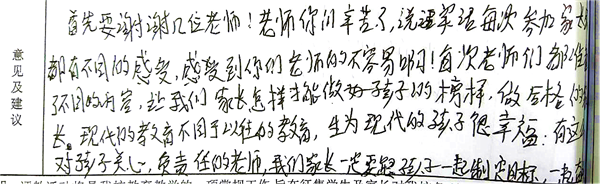 意见及建议
首先要谢谢几位老师！老师你们辛苦了，说实话每次参加家长
都有不同的感受，感受到你们老师的不容易啊！每次老师们都准
了不同的内容，让我们家长怎样才能做好孩子的榜样，做合格的
长。现代的教育不同于以往的教育，生为现代的孩子很幸福：有这
对孩子关心，负责任的老师，我们家长一定要跟孩子一起制定目标，一起